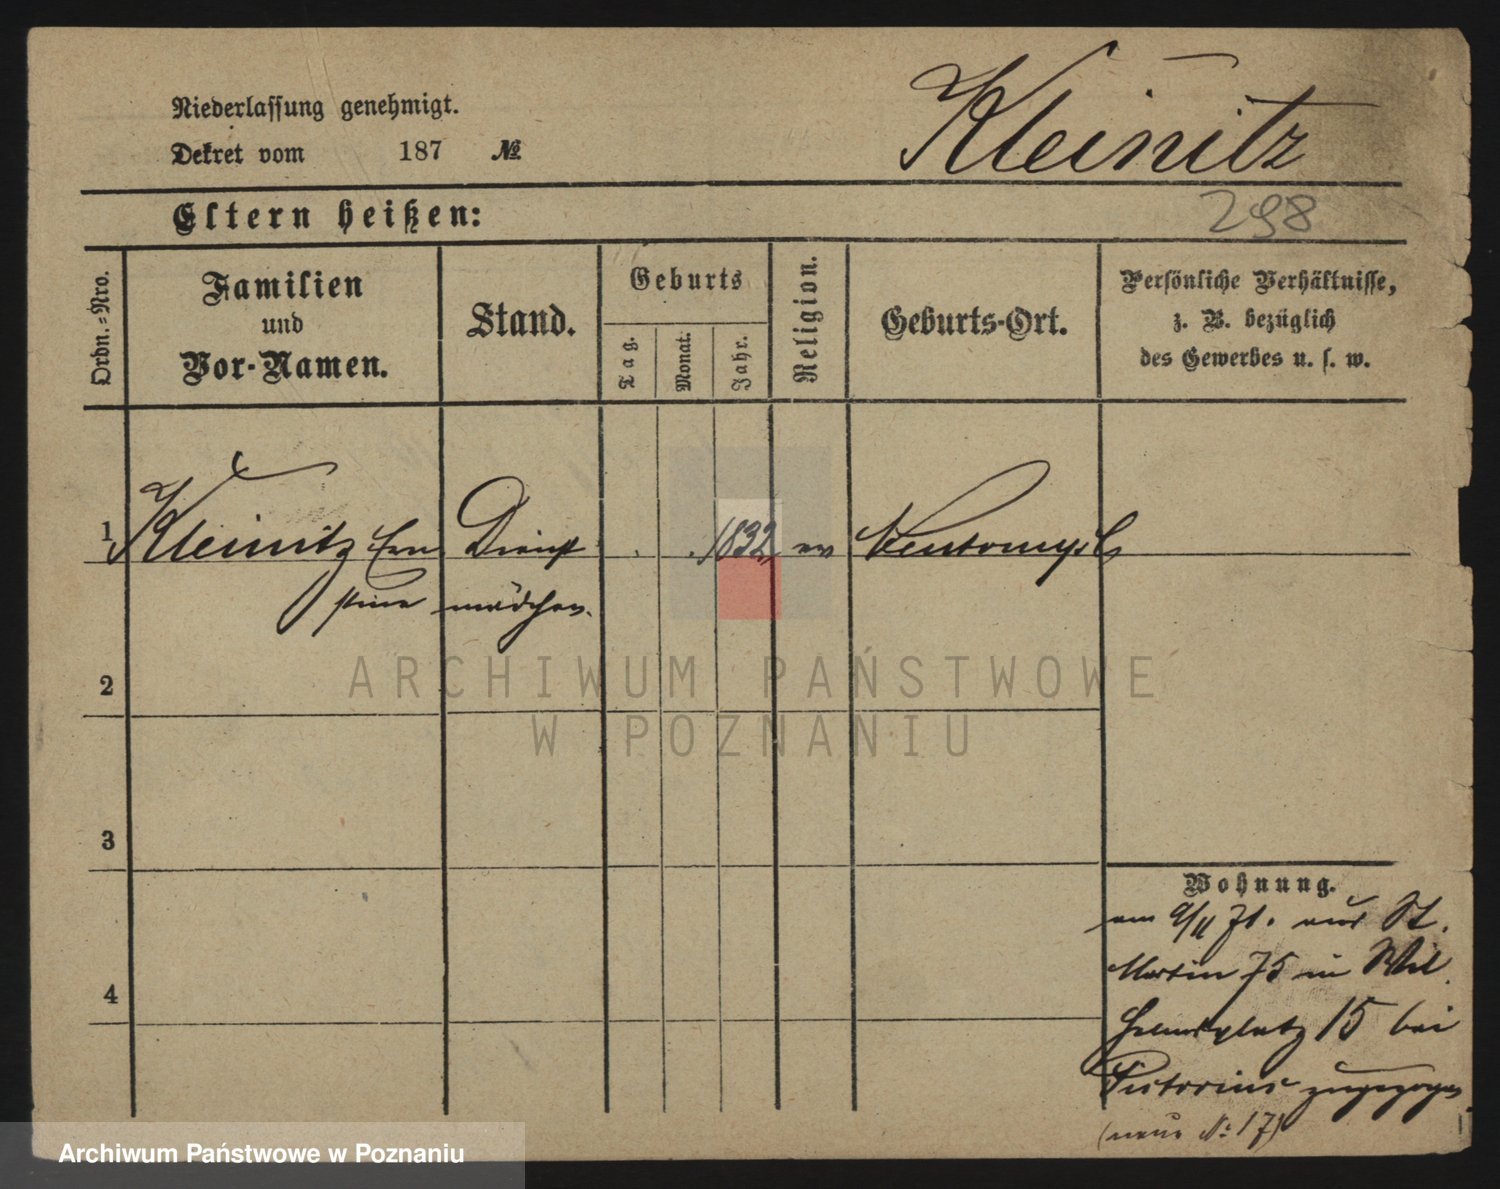 Kleinitz
Niederlassung genehmigt.
Dekret vom 187 №
298
Eltern heißen:
Ordn.-Nro.
Familien
und
Vor-Namen.
Stand.
Geburts
Tag.
Monat.
Jahr.
Religion.
Geburts-Ort.
Persönliche Verhältnisse,
z. B. bezüglich
des Gewerbes u. s. w.
1 Kleinitz Ern Dienst 1832 ev Neutomysl
stine mädchen.
2
3
4
Wohnung.
am 9/11 71. aus St.
Martin 75 in Wil
helmsplatz 15 bei
Pistorius zugezogen
(neue № 17)
ARCHIWUM PAŃSTWOWE
W POZNANIU
Archiwum Państwowe w Poznaniu